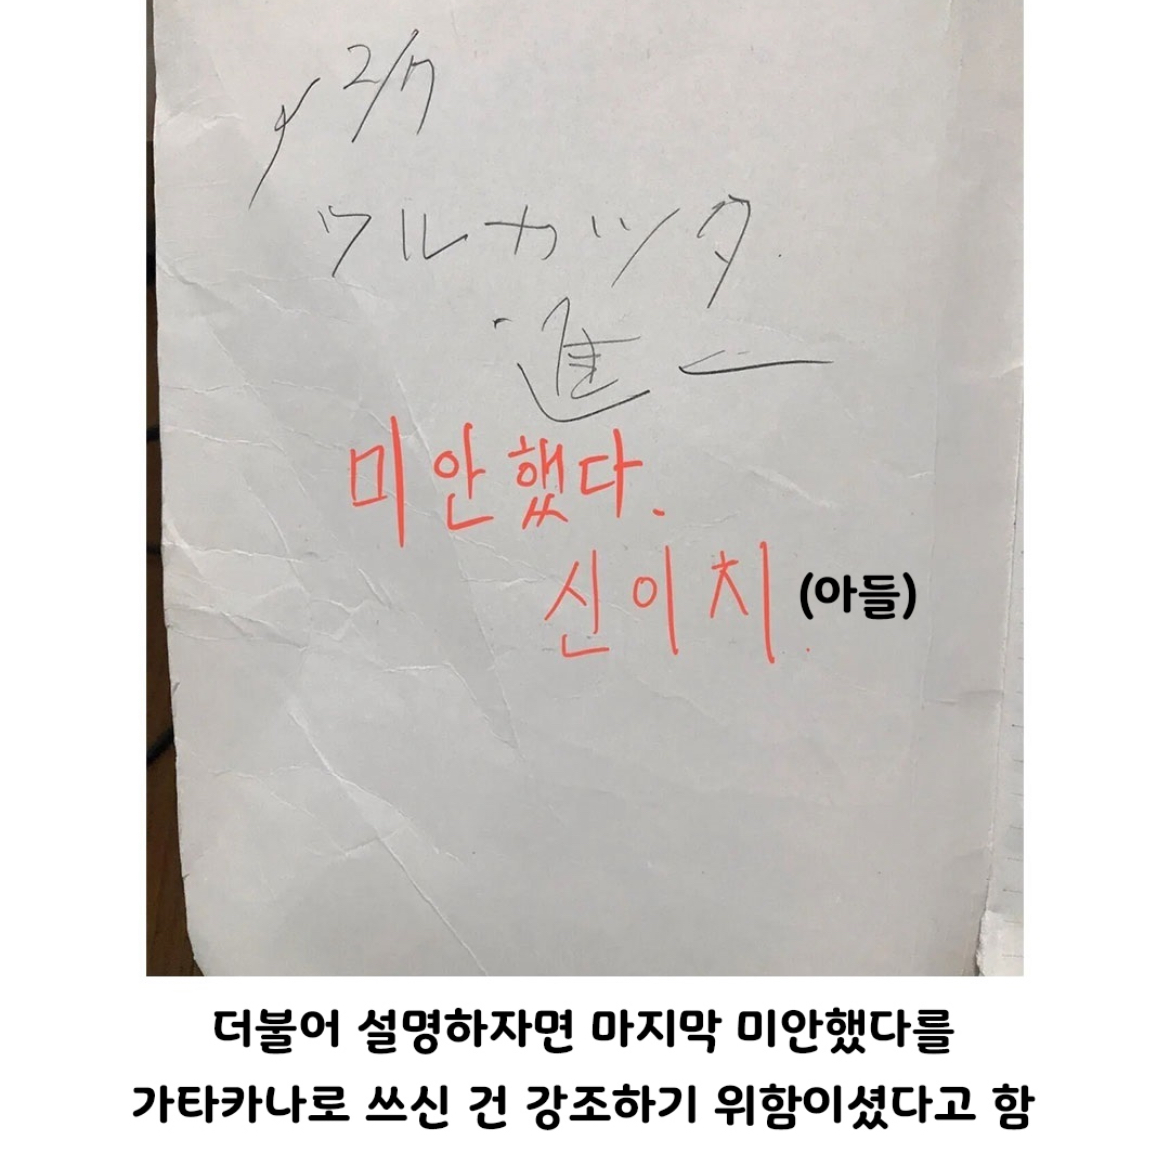 2/7
ワルカッタ.
進一
미안했다.
신이치. (아들)
더불어 설명하자면 마지막 미안했다를
가타카나로 쓰신 건 강조하기 위함이셨다고 함